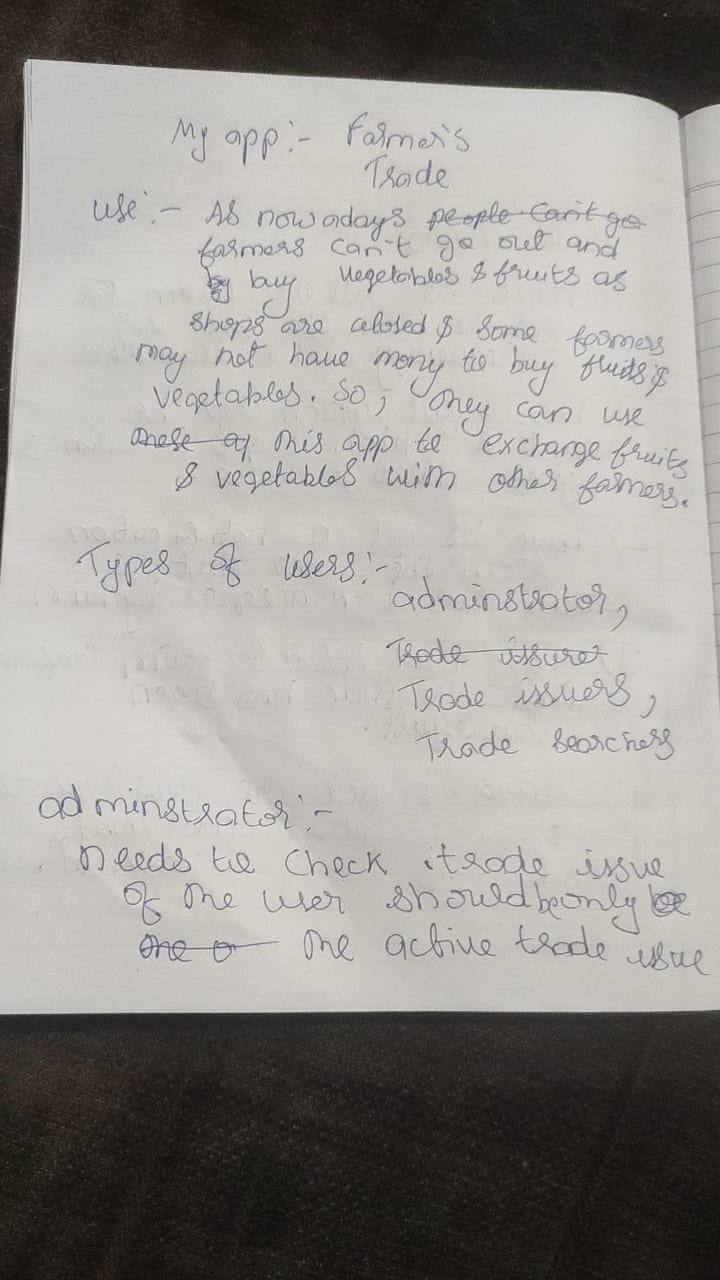 My app :- Farmer's
Trade
use :- As nowadays people can't go
farmers can't go out and
by buy vegetables & fruits as
shops are closed & some farmers
may not have mony to buy fruits &
vegetables. So, they can use
these of this app to exchange fruits
& vegetables with other farmers.
Types of users :-
adminstrator,
Trade issurer
Trade issuers,
Trade searchers
adminstrator :-
needs to check trade issue
of the user should be only be
one o the active trade issue